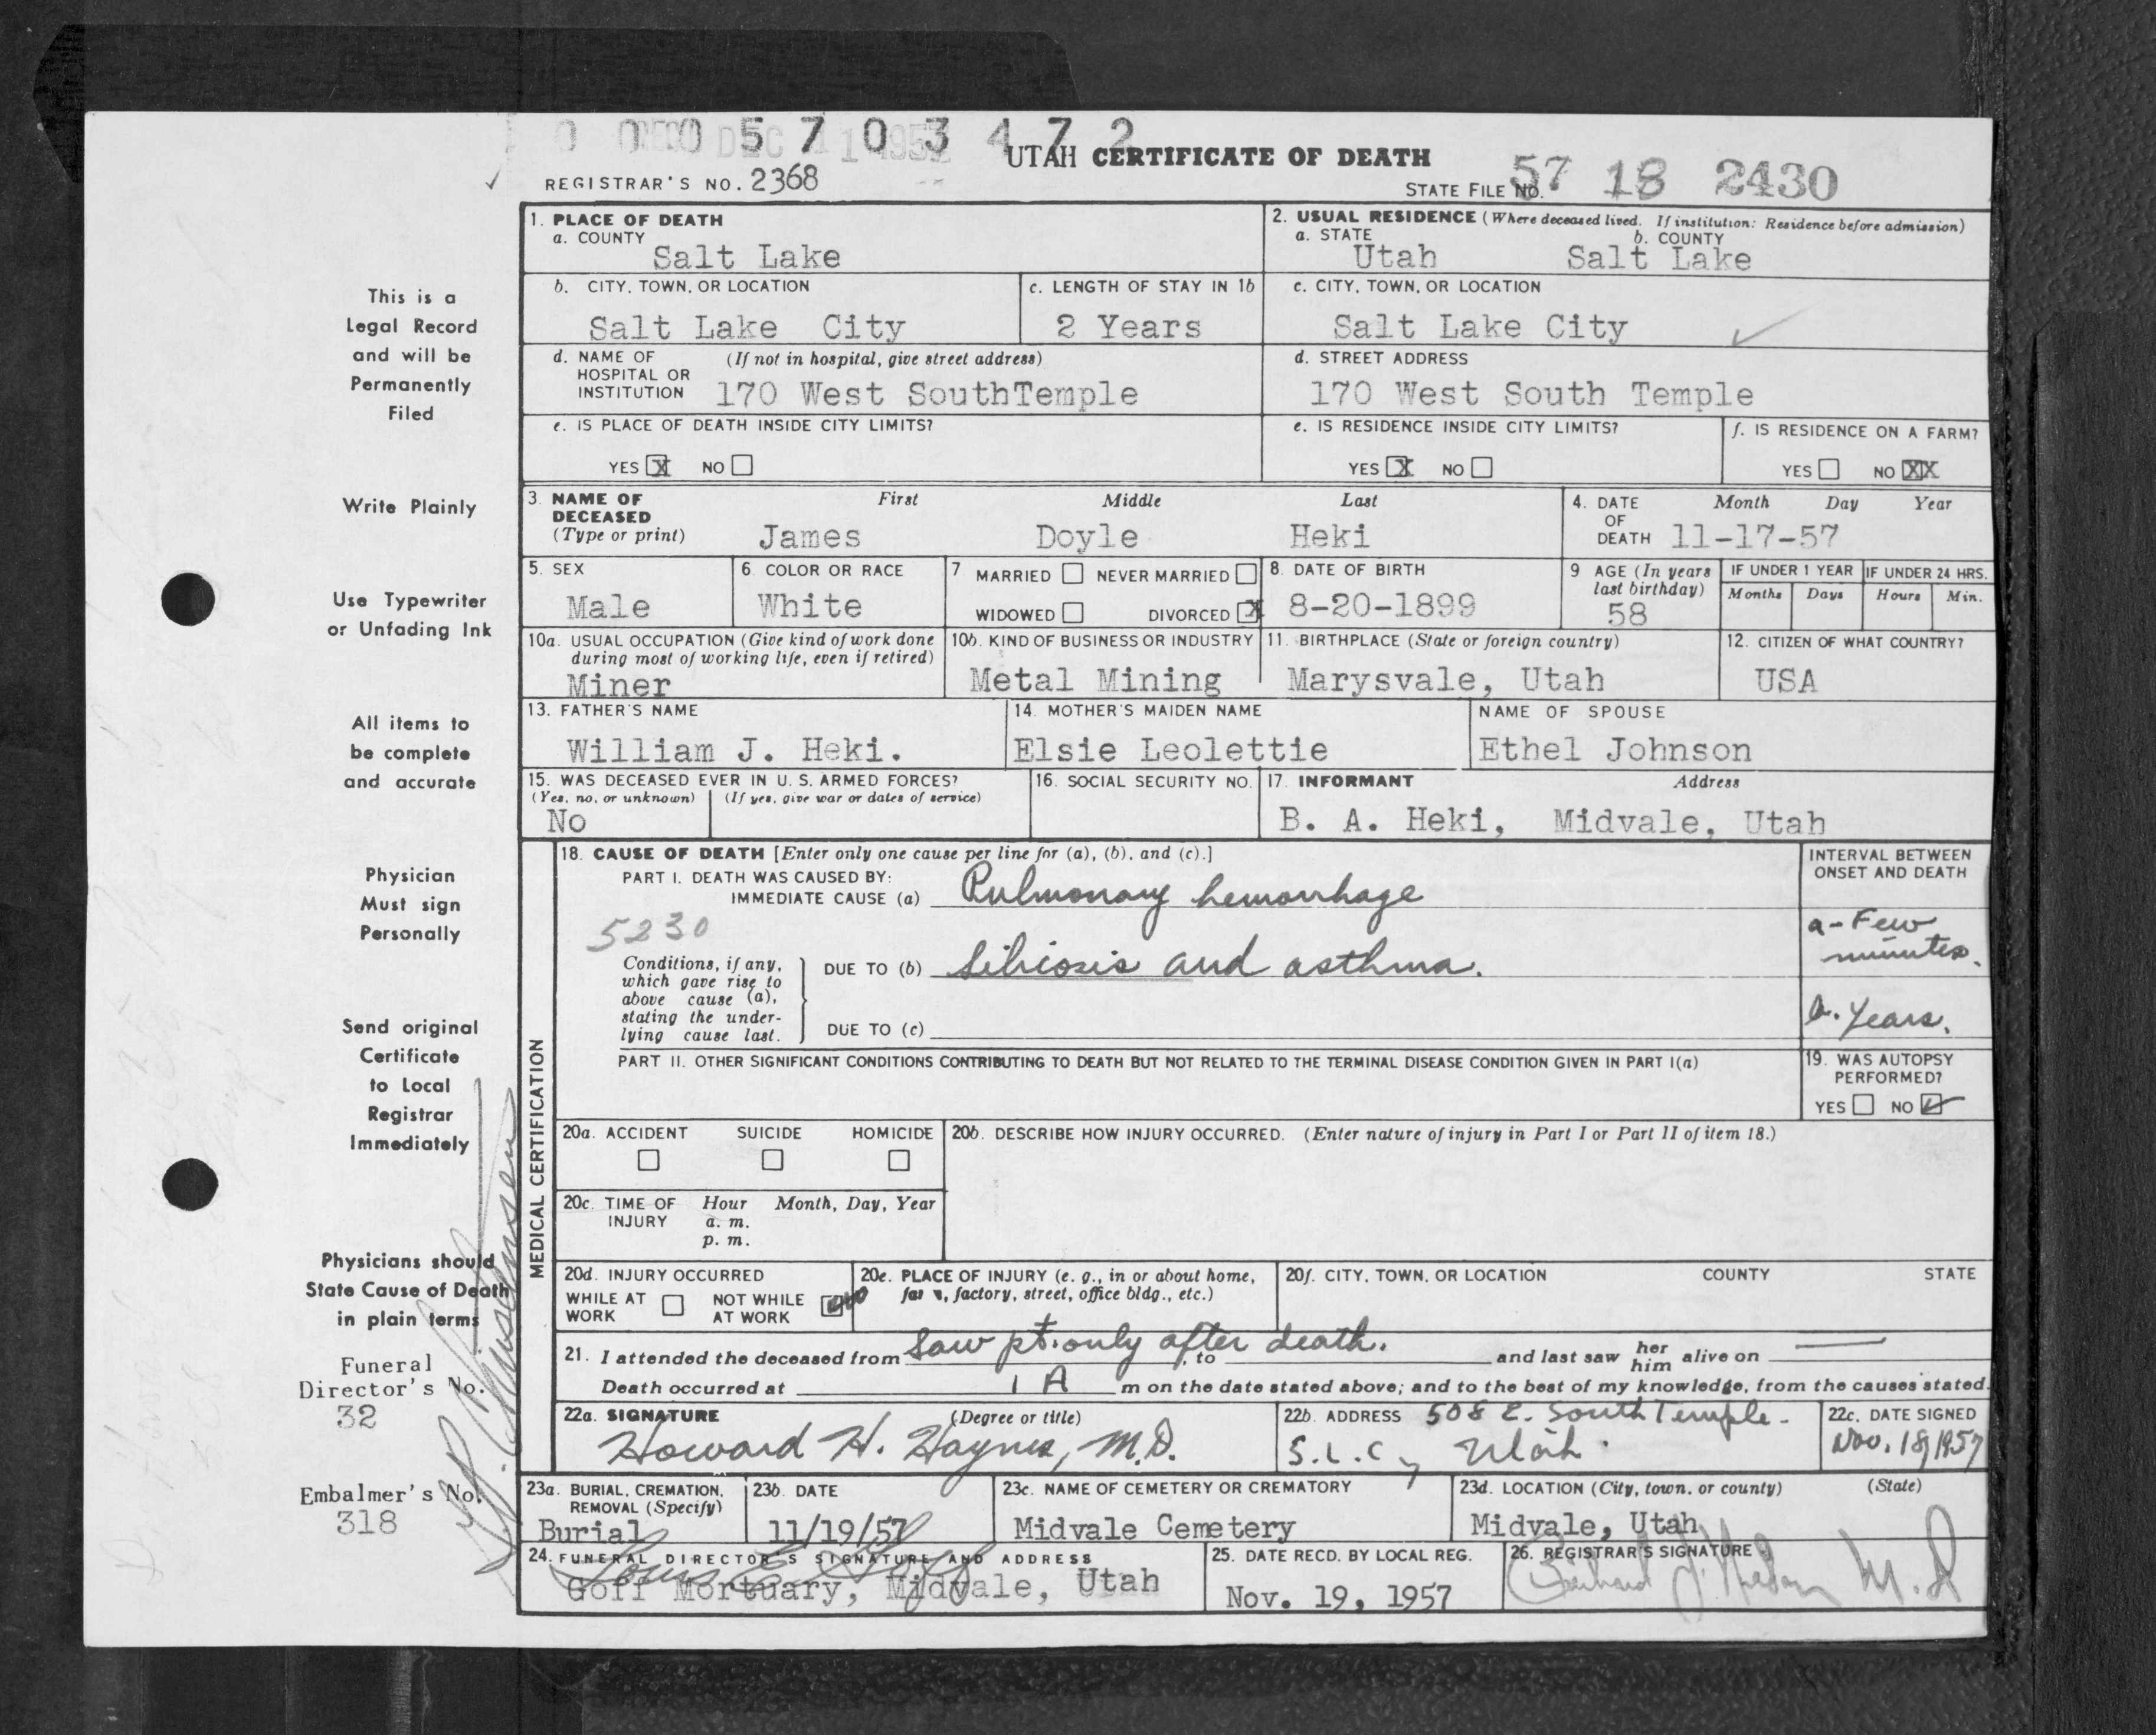 0 0 0 5 7 0 3 4 7 2
UTAH CERTIFICATE OF DEATH
REGISTRAR'S NO. 2368
STATE FILE NO. 57 18 2430
1. PLACE OF DEATH
a. COUNTY
Salt Lake
2. USUAL RESIDENCE (Where deceased lived. If institution: Residence before admission)
a. STATE b. COUNTY
Utah Salt Lake
b. CITY, TOWN, OR LOCATION
Salt Lake City
c. LENGTH OF STAY IN 1b
2 Years
c. CITY, TOWN, OR LOCATION
Salt Lake City
d. NAME OF (If not in hospital, give street address)
HOSPITAL OR
INSTITUTION 170 West SouthTemple
d. STREET ADDRESS
170 West South Temple
e. IS PLACE OF DEATH INSIDE CITY LIMITS?
YES X NO
e. IS RESIDENCE INSIDE CITY LIMITS?
YES X NO
f. IS RESIDENCE ON A FARM?
YES NO XX
3. NAME OF First Middle Last
DECEASED
(Type or print) James Doyle Heki
4. DATE Month Day Year
OF
DEATH 11-17-57
5. SEX
Male
6. COLOR OR RACE
White
7 MARRIED NEVER MARRIED
WIDOWED DIVORCED X
8. DATE OF BIRTH
8-20-1899
9 AGE (In years
last birthday)
58
IF UNDER 1 YEAR
Months Days
IF UNDER 24 HRS.
Hours Min.
10a. USUAL OCCUPATION (Give kind of work done
during most of working life, even if retired)
Miner
10b. KIND OF BUSINESS OR INDUSTRY
Metal Mining
11. BIRTHPLACE (State or foreign country)
Marysvale, Utah
12. CITIZEN OF WHAT COUNTRY?
USA
13. FATHER'S NAME
William J. Heki.
14. MOTHER'S MAIDEN NAME
Elsie Leolettie
NAME OF SPOUSE
Ethel Johnson
15. WAS DECEASED EVER IN U. S. ARMED FORCES?
(Yes, no, or unknown) (If yes, give war or dates of service)
No
16. SOCIAL SECURITY NO.
17. INFORMANT Address
B. A. Heki, Midvale, Utah
MEDICAL CERTIFICATION
18. CAUSE OF DEATH [Enter only one cause per line for (a), (b), and (c).]
PART I. DEATH WAS CAUSED BY:
IMMEDIATE CAUSE (a) Pulmonary hemorrhage
5230
Conditions, if any,
which gave rise to
above cause (a),
stating the under-
lying cause last.
DUE TO (b) Silicosis and asthma.
DUE TO (c)
INTERVAL BETWEEN
ONSET AND DEATH
a - Few
minutes.
b. Years.
PART II. OTHER SIGNIFICANT CONDITIONS CONTRIBUTING TO DEATH BUT NOT RELATED TO THE TERMINAL DISEASE CONDITION GIVEN IN PART I(a)
19. WAS AUTOPSY
PERFORMED?
YES NO
20a. ACCIDENT SUICIDE HOMICIDE
20b. DESCRIBE HOW INJURY OCCURRED. (Enter nature of injury in Part I or Part II of item 18.)
20c. TIME OF Hour Month, Day, Year
INJURY a. m.
p. m.
20d. INJURY OCCURRED
WHILE AT NOT WHILE
WORK AT WORK
20e. PLACE OF INJURY (e. g., in or about home,
farm, factory, street, office bldg., etc.)
20f. CITY, TOWN, OR LOCATION COUNTY STATE
21. I attended the deceased from Saw pt. only after death. , to and last saw her him alive on
Death occurred at 1 A m on the date stated above; and to the best of my knowledge, from the causes stated.
22a. SIGNATURE (Degree or title)
Howard H. Haynes, M.D.
22b. ADDRESS 508 E. South Temple -
S.L.C, Utah.
22c. DATE SIGNED
Nov. 18, 1957
23a. BURIAL, CREMATION,
REMOVAL (Specify)
Burial
23b. DATE
11/19/57
23c. NAME OF CEMETERY OR CREMATORY
Midvale Cemetery
23d. LOCATION (City, town, or county) (State)
Midvale, Utah
24. FUNERAL DIRECTOR'S SIGNATURE AND ADDRESS
Goff Mortuary, Midvale, Utah
25. DATE RECD. BY LOCAL REG.
Nov. 19, 1957
26. REGISTRAR'S SIGNATURE
M.D
This is a
Legal Record
and will be
Permanently
Filed
Write Plainly
Use Typewriter
or Unfading Ink
All items to
be complete
and accurate
Physician
Must sign
Personally
Send original
Certificate
to Local
Registrar
Immediately
Physicians should
State Cause of Death
in plain terms
Funeral
Director's No.
32
Embalmer's No.
318